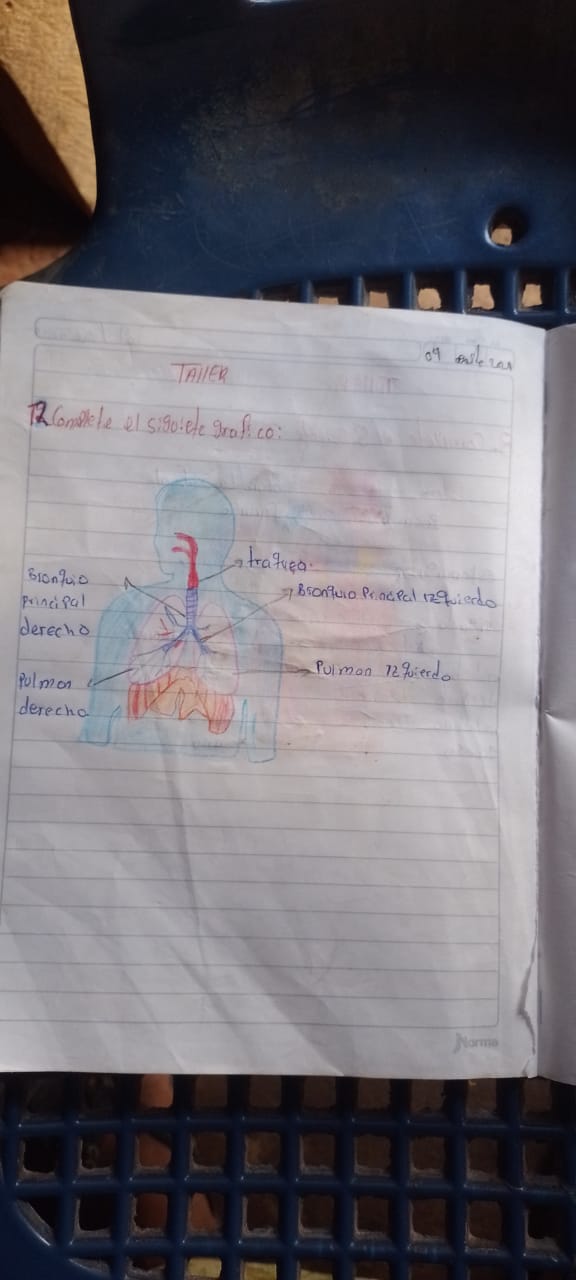 09
TAllER
12 Complete el siguiete grafico:
traquea.
Bronquio
principal
derecho
Bronquio Principal izquierdo
Pulmon izquierdo
Pulmon
derecho
Norma